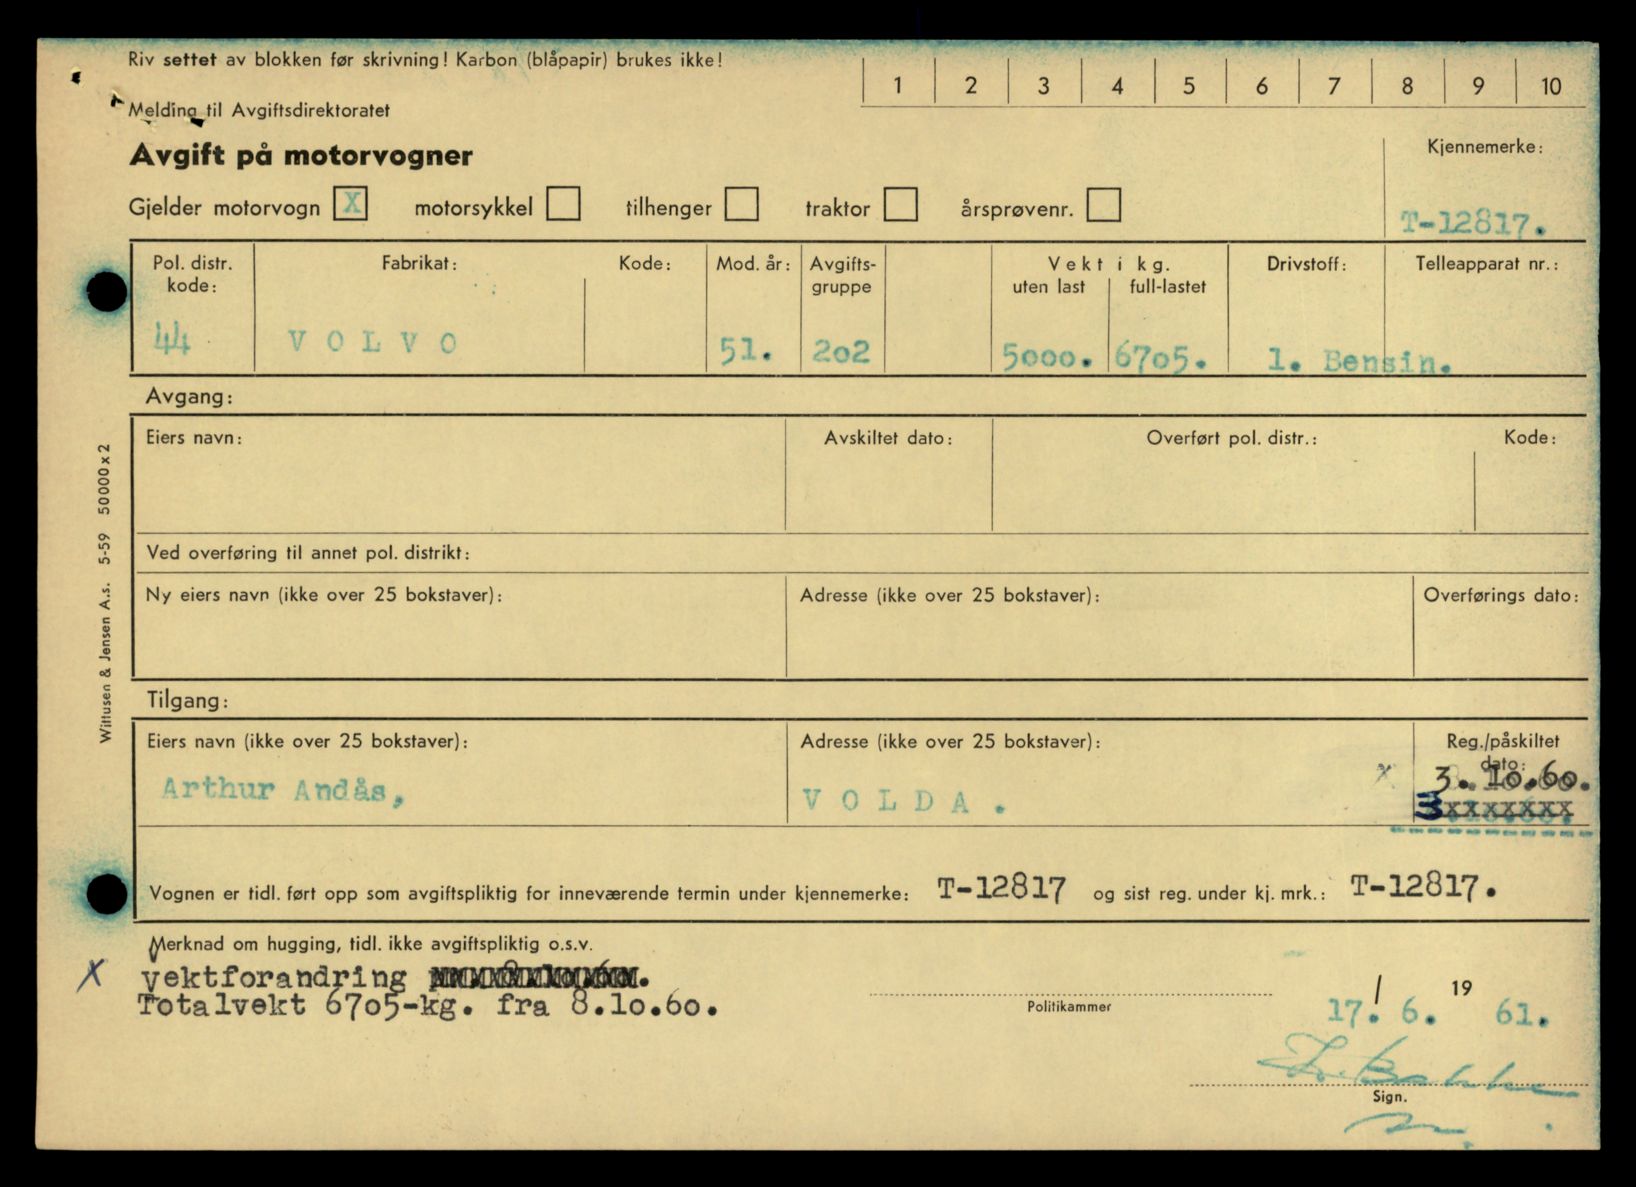 Riv settet av blokken før skrivning! Karbon (blåpapir) brukes ikke!
1 2 3 4 5 6 7 8 9 10
Melding til Avgiftsdirektoratet
Avgift på motorvogner
Kjennemerke:
Gjelder motorvogn X motorsykkel tilhenger traktor årsprøvenr.
T-12817.
Pol. distr. kode: Fabrikat: Kode: Mod. år: Avgifts-gruppe Vekt i kg. uten last full-lastet Drivstoff: Telleapparat nr.:
44 VOLVO 51. 202 5000. 6705. 1. Bensin.
Avgang:
Eiers navn: Avskiltet dato: Overført pol. distr.: Kode:
Ved overføring til annet pol. distrikt:
Ny eiers navn (ikke over 25 bokstaver): Adresse (ikke over 25 bokstaver): Overførings dato:
Tilgang:
Eiers navn (ikke over 25 bokstaver): Adresse (ikke over 25 bokstaver): Reg./påskiltet dato:
Arthur Andås, VOLDA. x 3.10.60.
Vognen er tidl. ført opp som avgiftspliktig for inneværende termin under kjennemerke: T-12817 og sist reg. under kj. mrk.: T-12817.
Merknad om hugging, tidl. ikke avgiftspliktig o.s.v.
X vektforandring
Totalvekt 6705-kg. fra 8.10.60.
Politikammer
17. / 6. 19 61.
Sign.
Wittusen & Jensen A.s. 5-59 50000x2